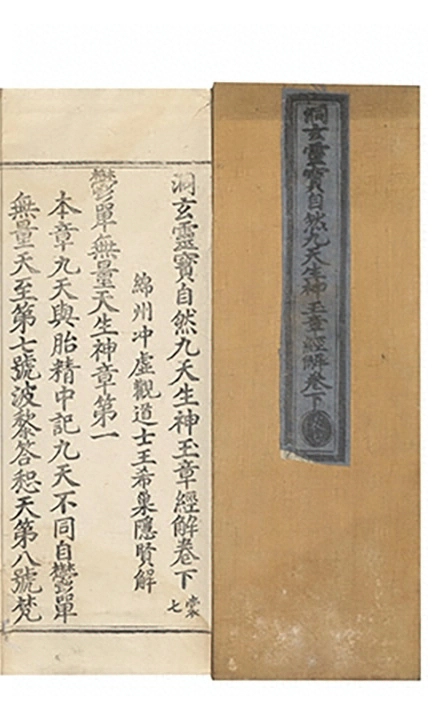 洞玄靈寶自然九天生神玉章經解卷下
洞玄靈寶自然九天生神玉章經解卷下
裳七
綿州冲虛觀道士王希巢隱賢解
鬱單無量天生神章第一
本章九天與胎精中記九天不同自鬱單
無量天至第七號波黎答惒天第八號梵